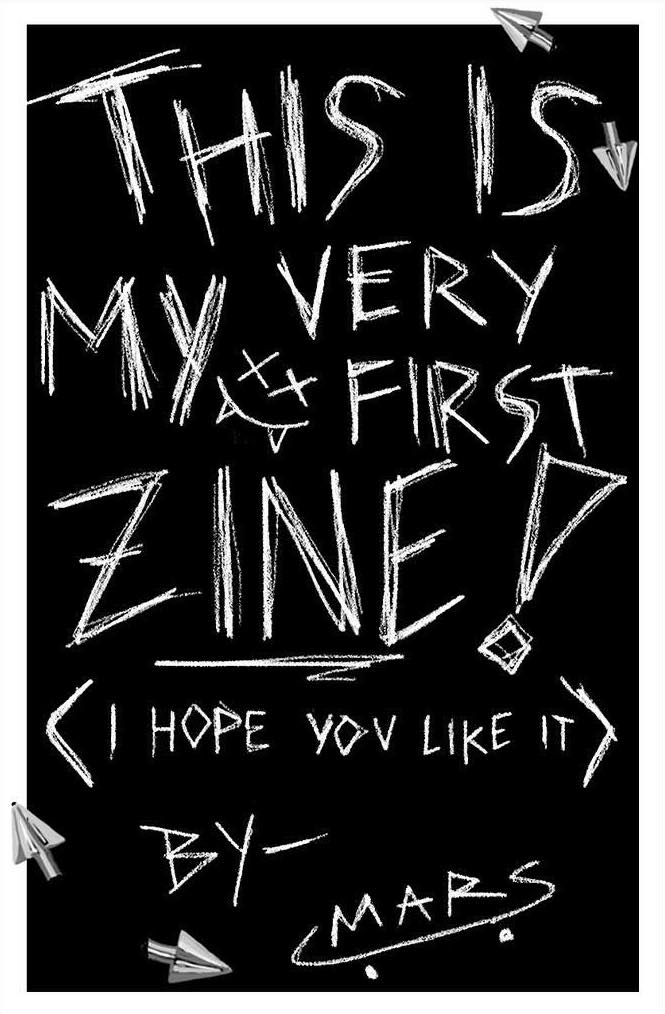 THIS IS
MY VERY
FIRST
ZINE!
(I HOPE YOU LIKE IT)
BY-
MARS